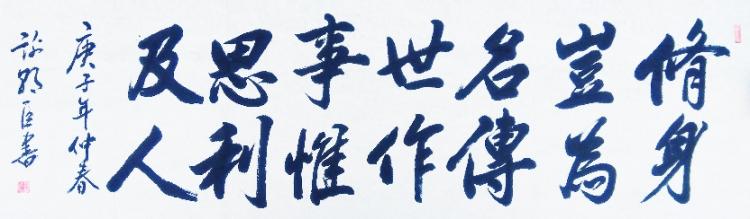 脩身
豈為
名傳
世作
事惟
思利
及人
庚子年仲春
臣書